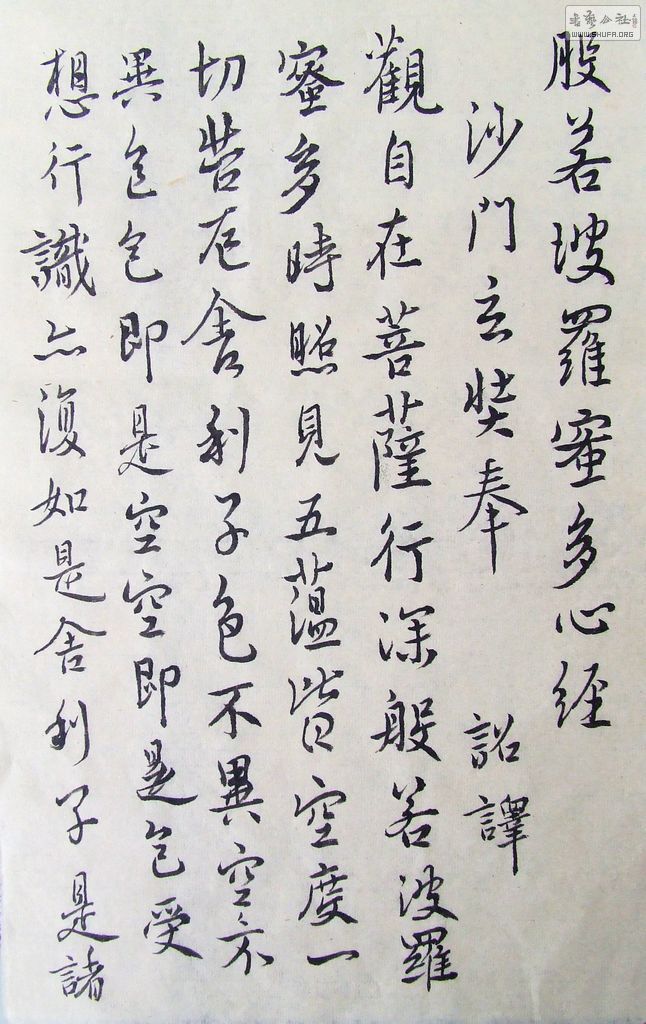 般若波羅蜜多心经
沙門玄奘奉 詔譯
觀自在菩薩行深般若波羅
蜜多時照見五蘊皆空度一
切苦厄舍利子色不異空不
異色色即是空空即是色受
想行識亦復如是舍利子是諸
書藝公社
WWW.SHUFA.ORG